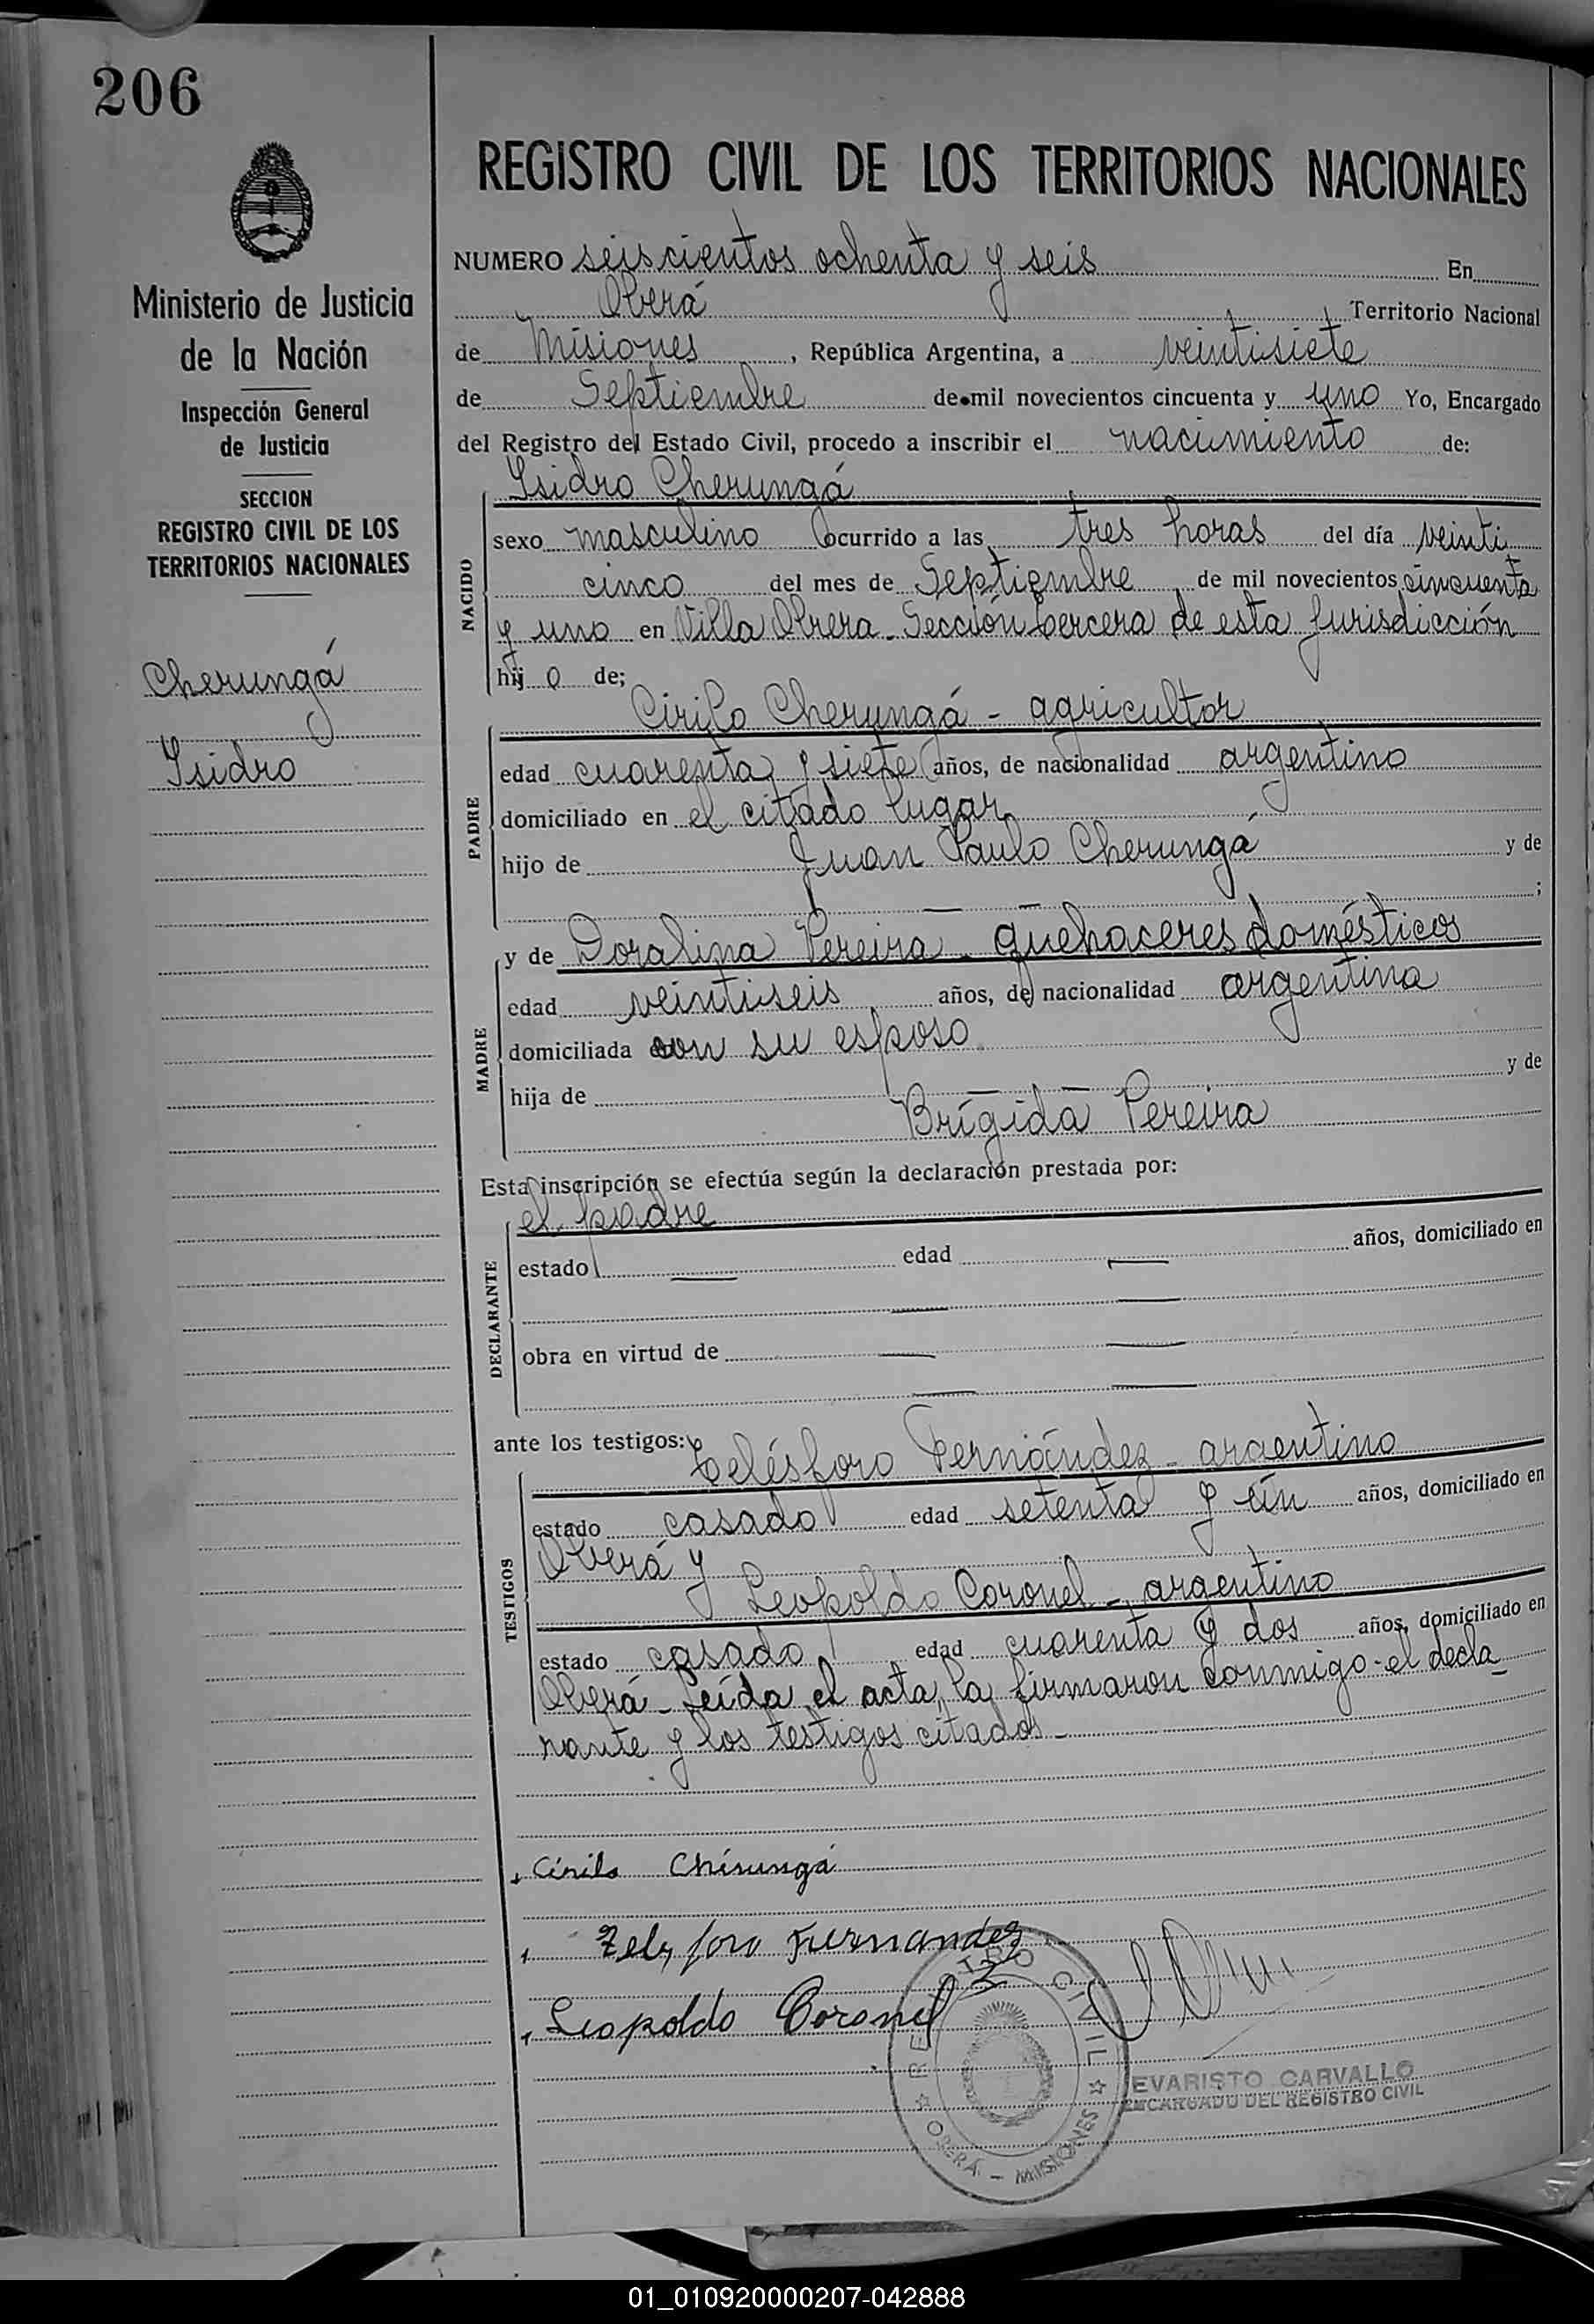 206
REGISTRO CIVIL DE LOS TERRITORIOS NACIONALES
Ministerio de Justicia
de la Nación
Inspección General
de Justicia
SECCION
REGISTRO CIVIL DE LOS
TERRITORIOS NACIONALES
Cherungá
Isidro
NUMERO seiscientos ochenta y seis En
Oberá Territorio Nacional
de Misiones, República Argentina, a veintisiete
de Septiembre de mil novecientos cincuenta y uno Yo, Encargado
del Registro del Estado Civil, procedo a inscribir el nacimiento de:
Isidro Cherungá
NACIDO
sexo masculino ocurrido a las tres horas del día veinti
cinco del mes de Septiembre de mil novecientos cincuenta
y uno en Villa Obrera - Sección tercera de esta jurisdicción
hijo de;
Cirilo Cherungá - agricultor
PADRE
edad cuarenta y siete años, de nacionalidad argentino
domiciliado en el citado lugar
hijo de Juan Paulo Cherungá y de
— — ;
y de Doralina Pereira - quehaceres domésticos
MADRE
edad veintiseis años, de nacionalidad argentina
domiciliada con su esposo
hija de — — y de
Brígida Pereira
Esta inscripción se efectúa según la declaración prestada por:
el padre
DECLARANTE
estado — edad — años, domiciliado en
— —
obra en virtud de — —
— —
ante los testigos: Telésforo Fernández - argentino
TESTIGOS
estado casado edad setenta y un años, domiciliado en
Oberá y
Leopoldo Coronel - argentino
estado casado edad cuarenta y dos años, domiciliado en
Oberá - Leída el acta, la firmaron conmigo el decla
rante y los testigos citados -
Cirilo Chirungá
Zelesforo Fernandez
Leopoldo Coronel
REGISTRO CIVIL
OBERÁ - MISIONES
EVARISTO CARVALLO
ENCARGADO DEL REGISTRO CIVIL
01_010920000207-042888